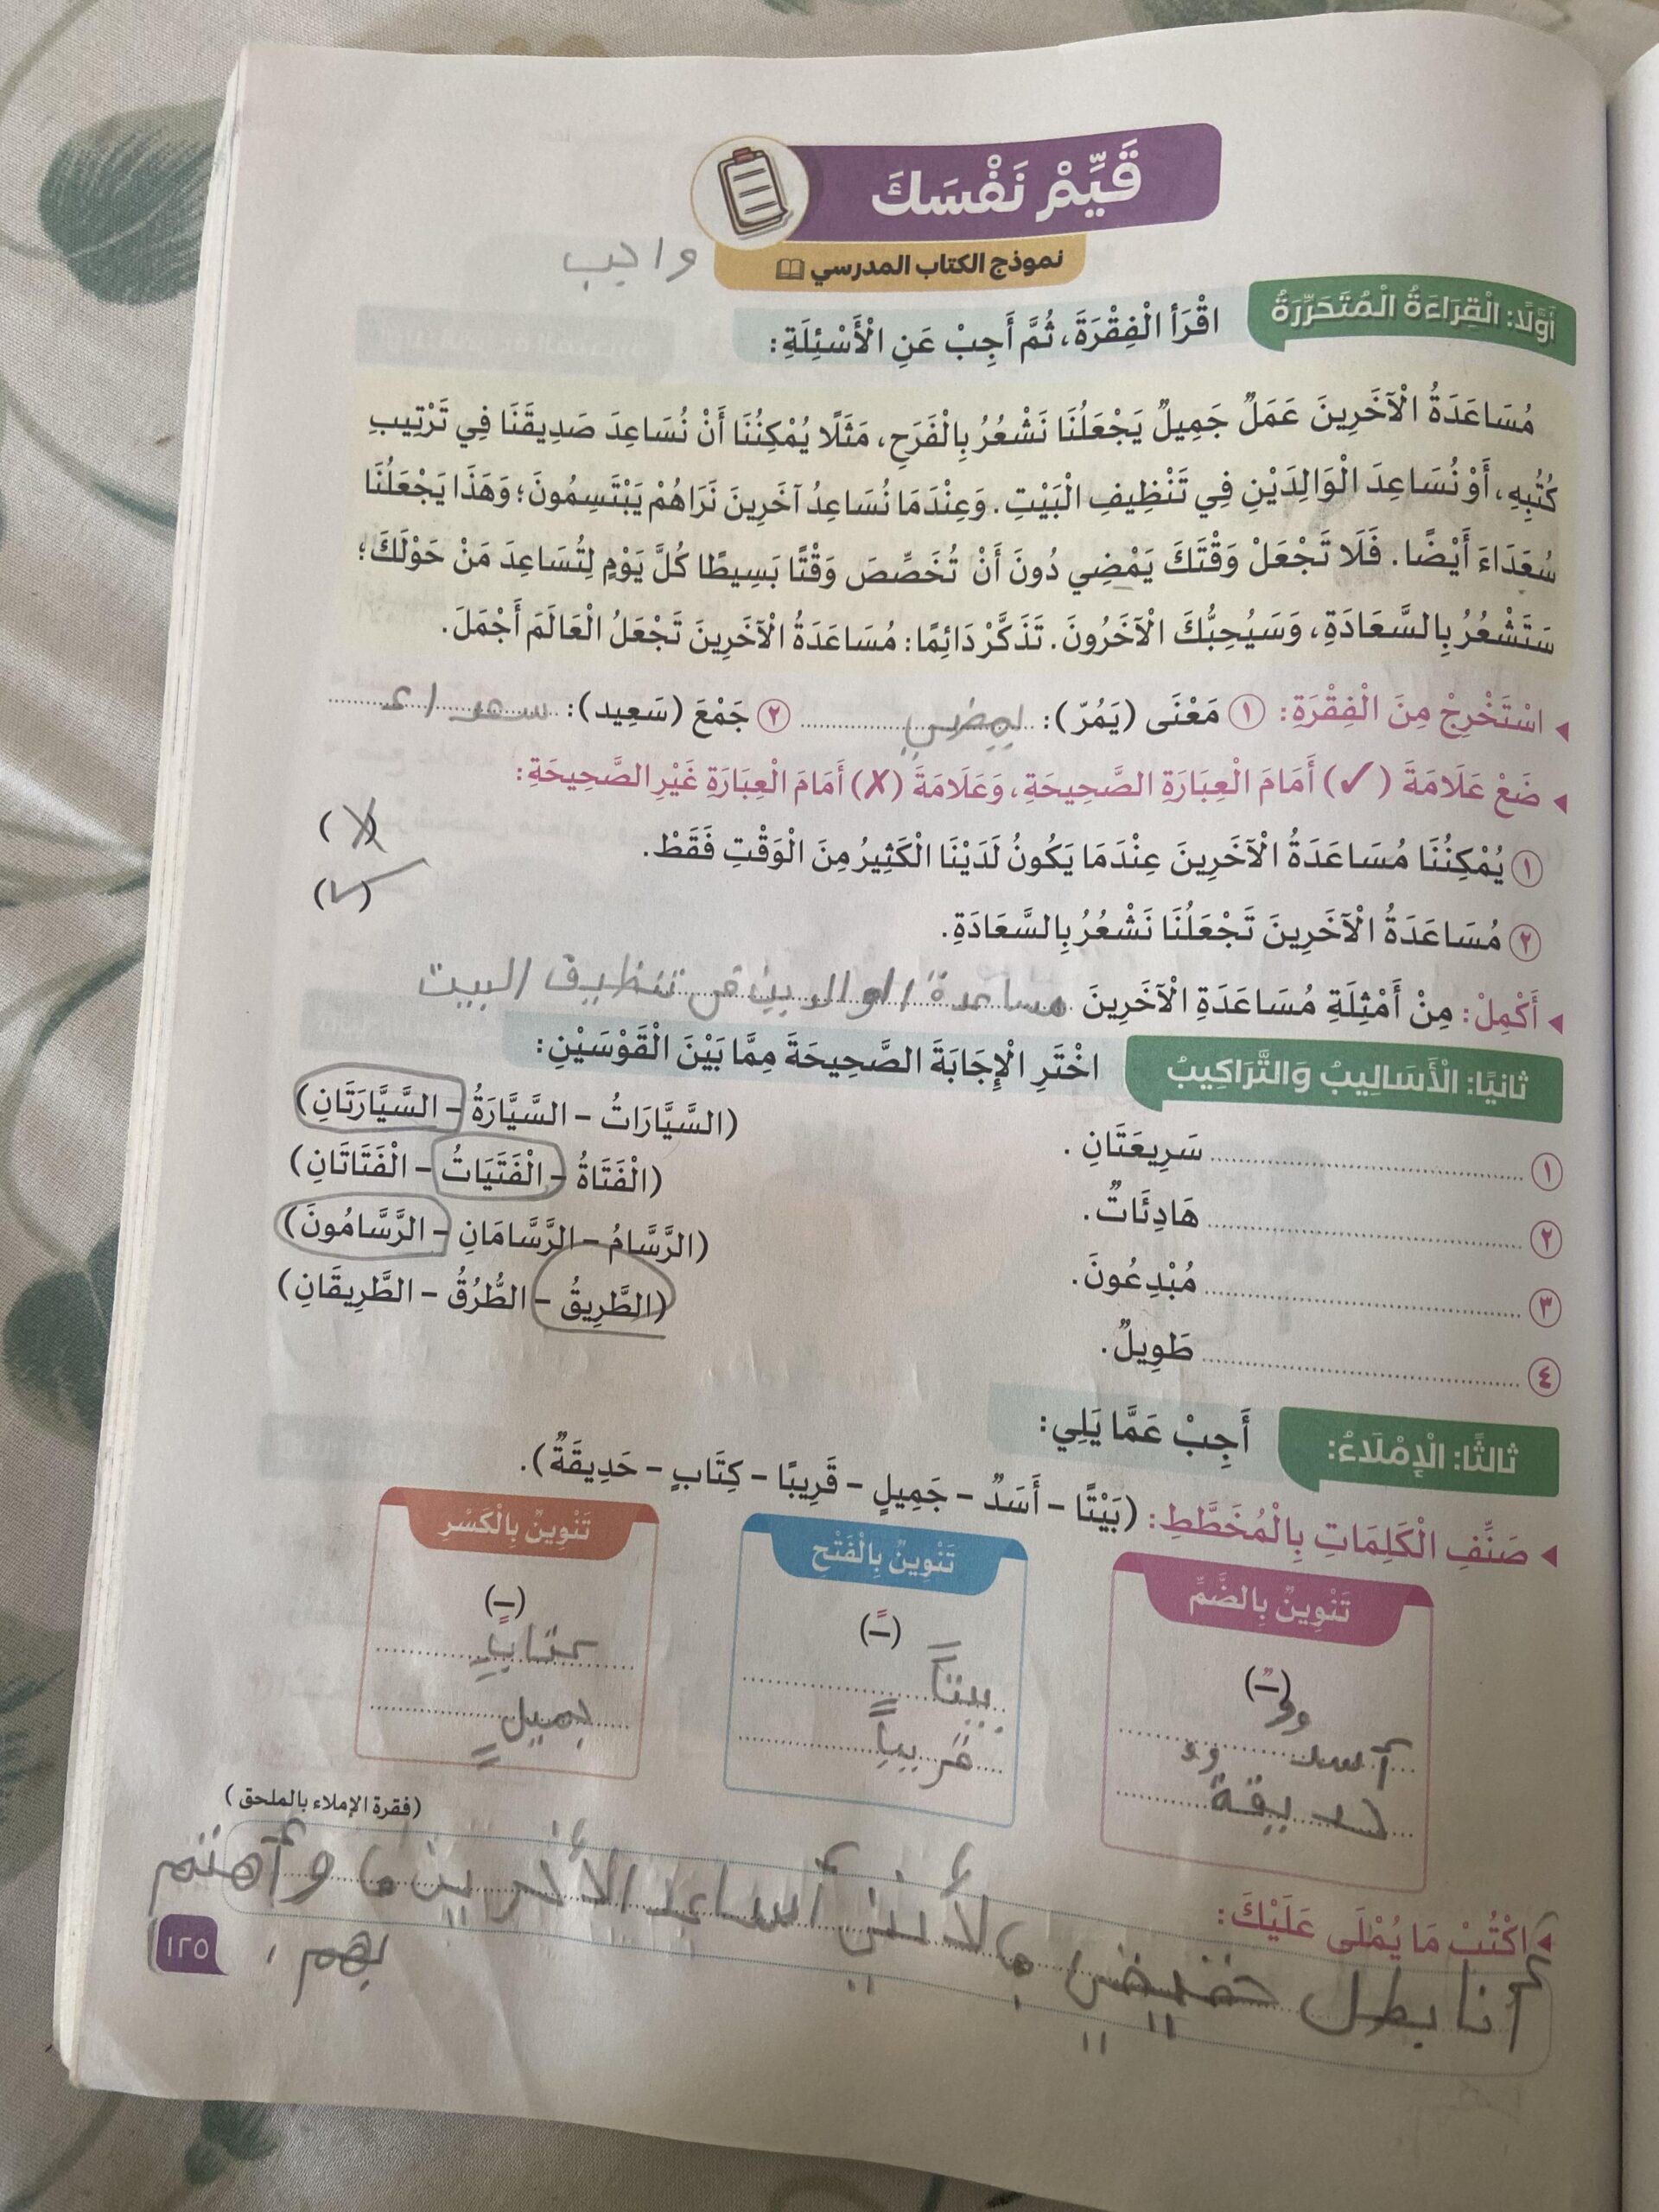 قَيِّمْ نَفْسَكَ
نموذج الكتاب المدرسي
واجب
أَوَّلًا: الْقِرَاءَةُ الْمُتَحَرِّرَةُ اقْرَأِ الْفِقْرَةَ، ثُمَّ أَجِبْ عَنِ الْأَسْئِلَةِ:
مُسَاعَدَةُ الْآخَرِينَ عَمَلٌ جَمِيلٌ يَجْعَلُنَا نَشْعُرُ بِالْفَرَحِ، مَثَلًا يُمْكِنُنَا أَنْ نُسَاعِدَ صَدِيقَنَا فِي تَرْتِيبِ
كُتُبِهِ، أَوْ نُسَاعِدَ الْوَالِدَيْنِ فِي تَنْظِيفِ الْبَيْتِ. وَعِنْدَمَا نُسَاعِدُ آخَرِينَ نَرَاهُمْ يَبْتَسِمُونَ؛ وَهَذَا يَجْعَلُنَا
سُعَدَاءَ أَيْضًا. فَلَا تَجْعَلْ وَقْتَكَ يَمْضِي دُونَ أَنْ تُخَصِّصَ وَقْتًا بَسِيطًا كُلَّ يَوْمٍ لِتُسَاعِدَ مَنْ حَوْلَكَ؛
سَتَشْعُرُ بِالسَّعَادَةِ، وَسَيُحِبُّكَ الْآخَرُونَ. تَذَكَّرْ دَائِمًا: مُسَاعَدَةُ الْآخَرِينَ تَجْعَلُ الْعَالَمَ أَجْمَلَ.
اسْتَخْرِجْ مِنَ الْفِقْرَةِ: ١ مَعْنَى (يَمُرّ): يمضي ٢ جَمْعَ (سَعِيد): سعداء
ضَعْ عَلَامَةَ (✓) أَمَامَ الْعِبَارَةِ الصَّحِيحَةِ، وَعَلَامَةَ (✗) أَمَامَ الْعِبَارَةِ غَيْرِ الصَّحِيحَةِ:
١ يُمْكِنُنَا مُسَاعَدَةُ الْآخَرِينَ عِنْدَمَا يَكُونُ لَدَيْنَا الْكَثِيرُ مِنَ الْوَقْتِ فَقَطْ. (✗)
٢ مُسَاعَدَةُ الْآخَرِينَ تَجْعَلُنَا نَشْعُرُ بِالسَّعَادَةِ. (✓)
أَكْمِلْ: مِنْ أَمْثِلَةِ مُسَاعَدَةِ الْآخَرِينَ مساعدة الوالدين في تنظيف البيت
ثَانِيًا: الْأَسَالِيبُ وَالتَّرَاكِيبُ اخْتَرِ الْإِجَابَةَ الصَّحِيحَةَ مِمَّا بَيْنَ الْقَوْسَيْنِ:
١ ........ سَرِيعَتَانِ. (السَّيَّارَاتُ - السَّيَّارَةُ - السَّيَّارَتَانِ)
٢ ........ هَادِئَاتٌ. (الْفَتَاةُ - الْفَتَيَاتُ - الْفَتَاتَانِ)
٣ ........ مُبْدِعُونَ. (الرَّسَّامُ - الرَّسَّامَانِ - الرَّسَّامُونَ)
٤ ........ طَوِيلٌ. (الطَّرِيقُ - الطُّرُقُ - الطَّرِيقَانِ)
ثَالِثًا: الْإِمْلَاءُ: أَجِبْ عَمَّا يَلِي:
صَنِّفِ الْكَلِمَاتِ بِالْمُخَطَّطِ: (بَيْتًا - أَسَدٌ - جَمِيلٍ - قَرِيبًا - كِتَابٍ - حَدِيقَةٌ).
تَنْوِينٌ بِالضَّمِّ
(ــٌ)
أسدٌ
حديقةٌ
تَنْوِينٌ بِالْفَتْحِ
(ــً)
بيتاً
قريباً
تَنْوِينٌ بِالْكَسْرِ
(ــٍ)
كتابٍ
جميلٍ
(فقرة الإملاء بالملحق)
اكْتُبْ مَا يُمْلَى عَلَيْكَ:
أنا بطل لأنني أساعد الأخرين وأهتم
بهم.
١٢٥